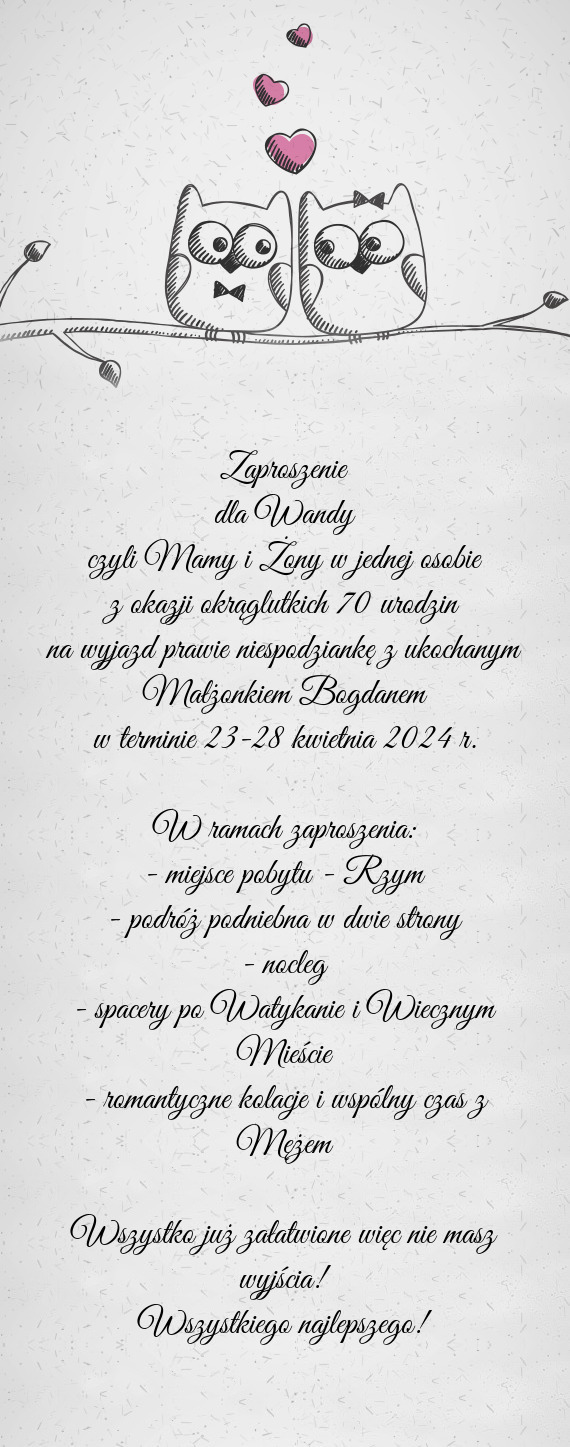 Zaproszenie
dla Wandy
czyli Mamy i Żony w jednej osobie
z okazji okrąglutkich 70 urodzin
na wyjazd prawie niespodziankę z ukochanym
Małżonkiem Bogdanem
w terminie 23-28 kwietnia 2024 r.
W ramach zaproszenia:
- miejsce pobytu - Rzym
- podróż podniebna w dwie strony
- nocleg
- spacery po Watykanie i Wiecznym
Mieście
- romantyczne kolacje i wspólny czas z
Mężem
Wszystko już załatwione więc nie masz
wyjścia!
Wszystkiego najlepszego!